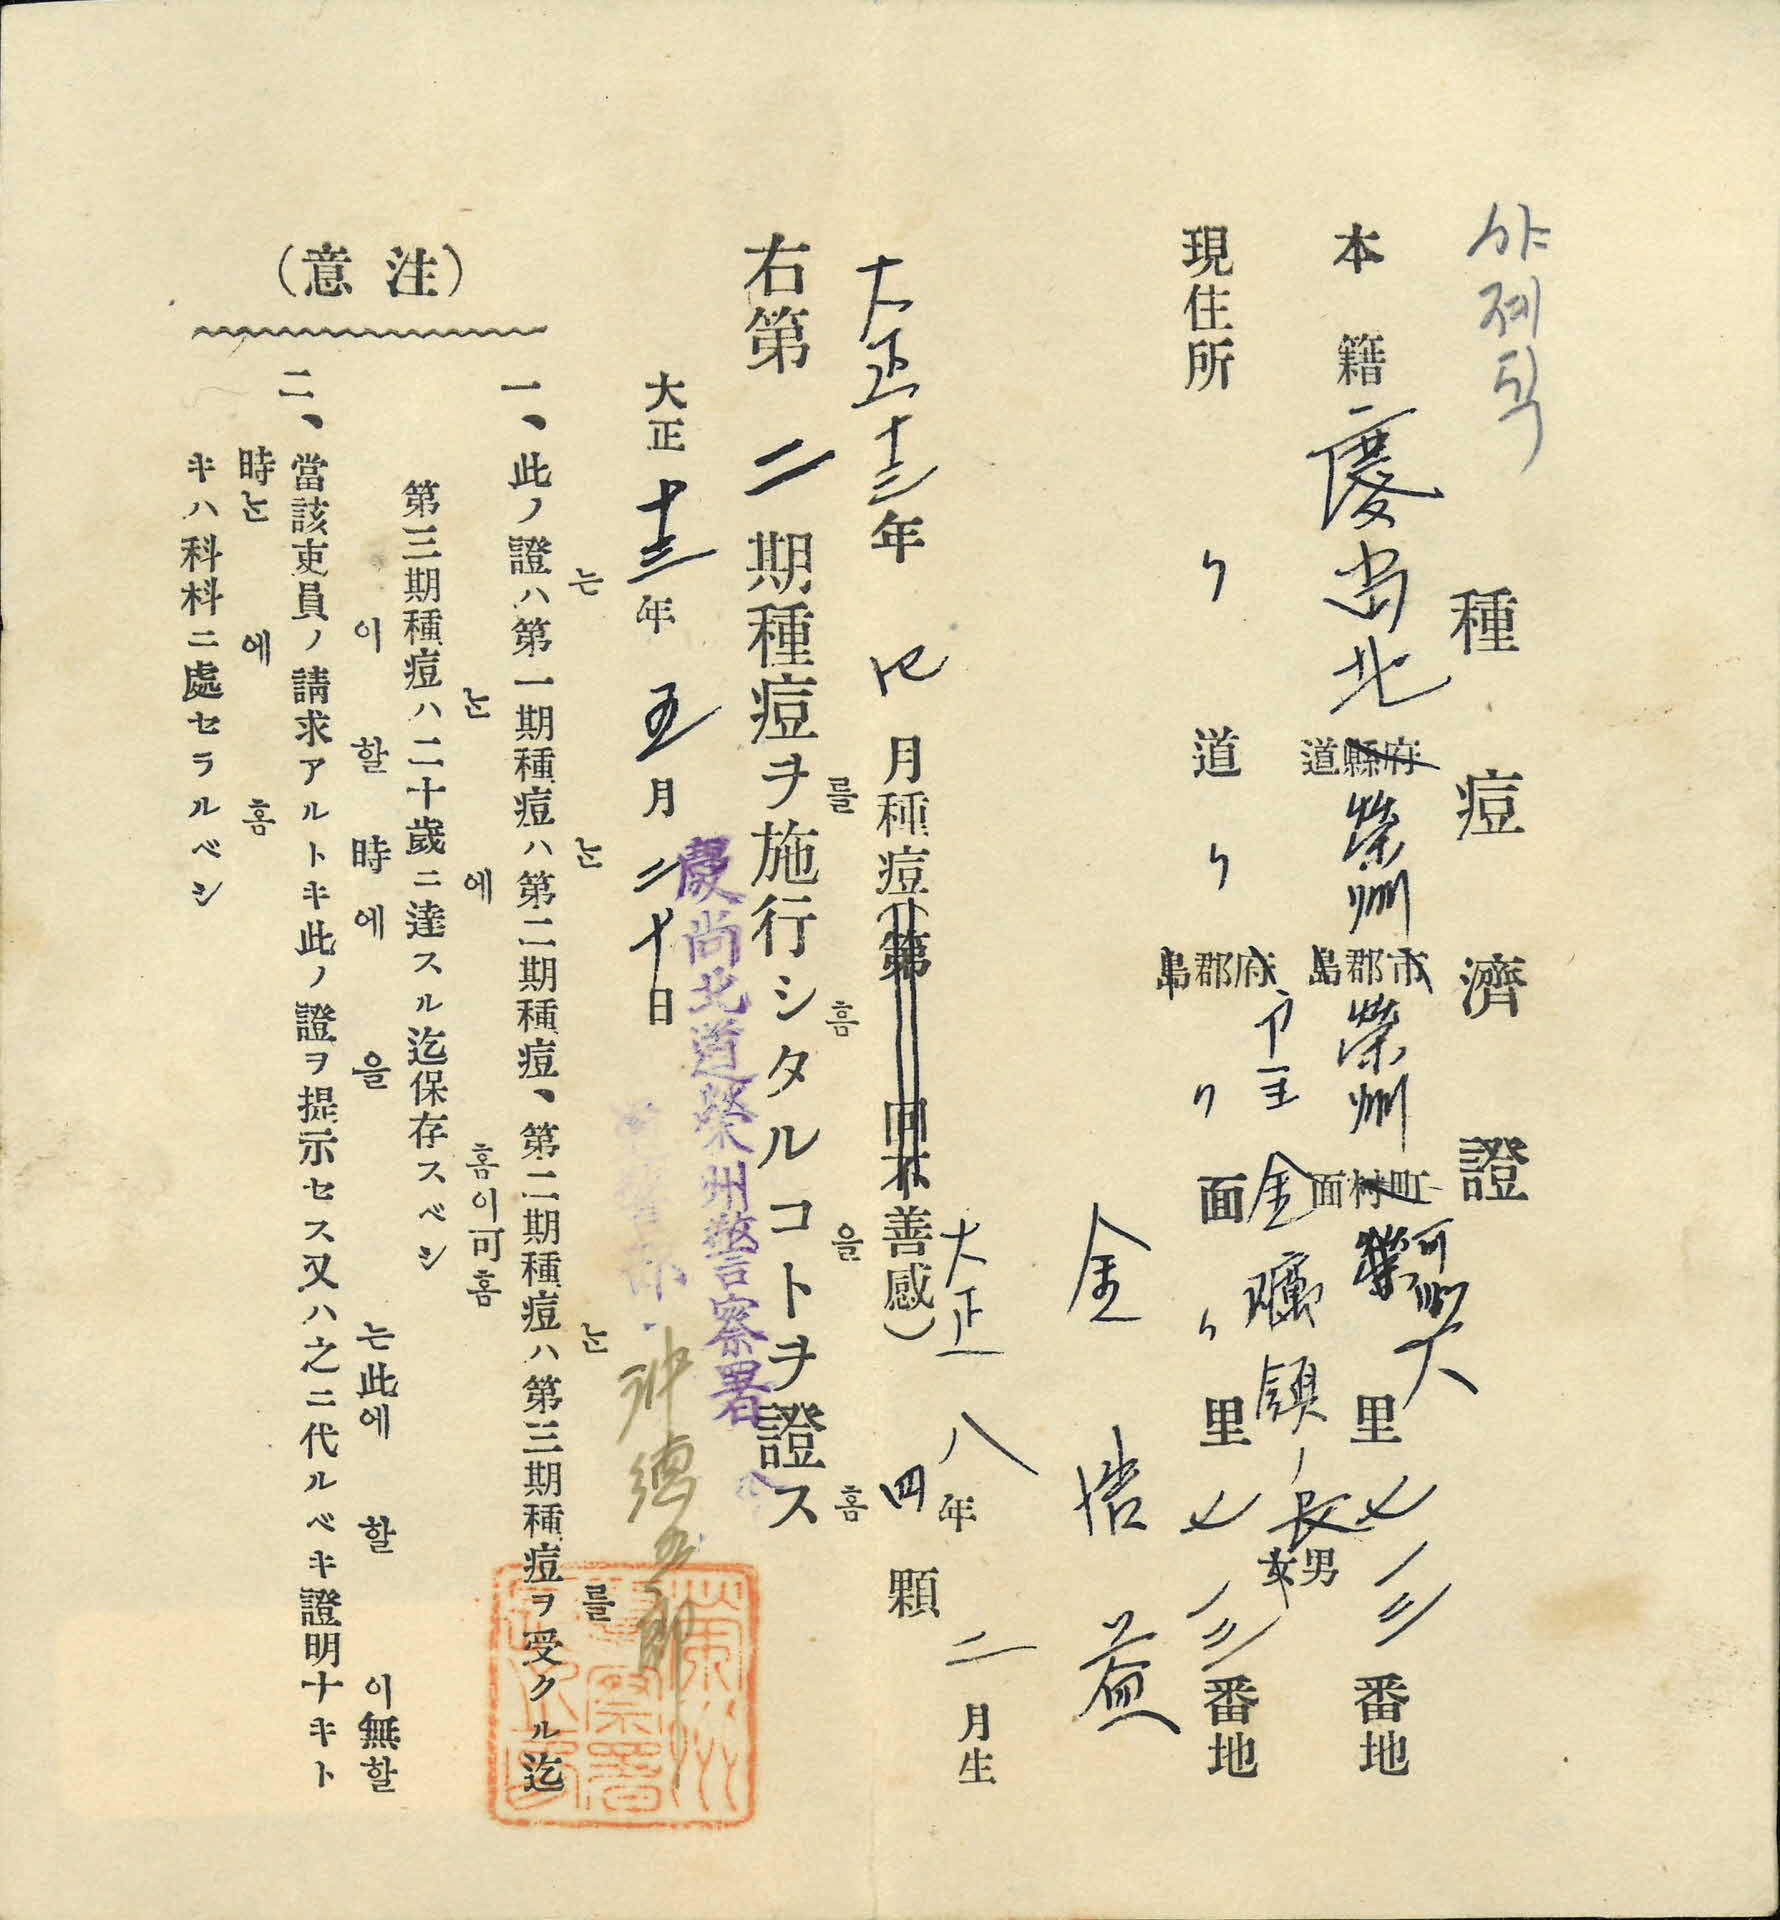 種痘濟證
本籍 慶尚北 道縣府 榮州 島郡市 榮州 面村町 里 七一三 番地
現住所 〃 道 〃 島郡府 〃 面 〃 里 七一三 番地
戸主 金 ノ長 女男
金 益
大正八年二月生
大正十三年 四 月種痘(第 回不善感) 四顆
右第二期種痘ヲ施行シタルコトヲ證ス
를 홈 을 홈
慶尚北道榮州警察署
大正十三年五月二十日
는 는 는 를
一、此ノ證ハ第一期種痘ハ第二期種痘、第二期種痘ハ第三期種痘ヲ受クル迄
는 에 홈이可홈
第三期種痘ハ二十歲ニ達スル迄保存スベシ
이 할 時에 을 는此에 할 이無할
二、當該吏員ノ請求アルトキ此ノ證ヲ提示セス又ハ之ニ代ルベキ證明ナキト
時는 에 홈
キハ科料ニ處セラルベシ
(注意)